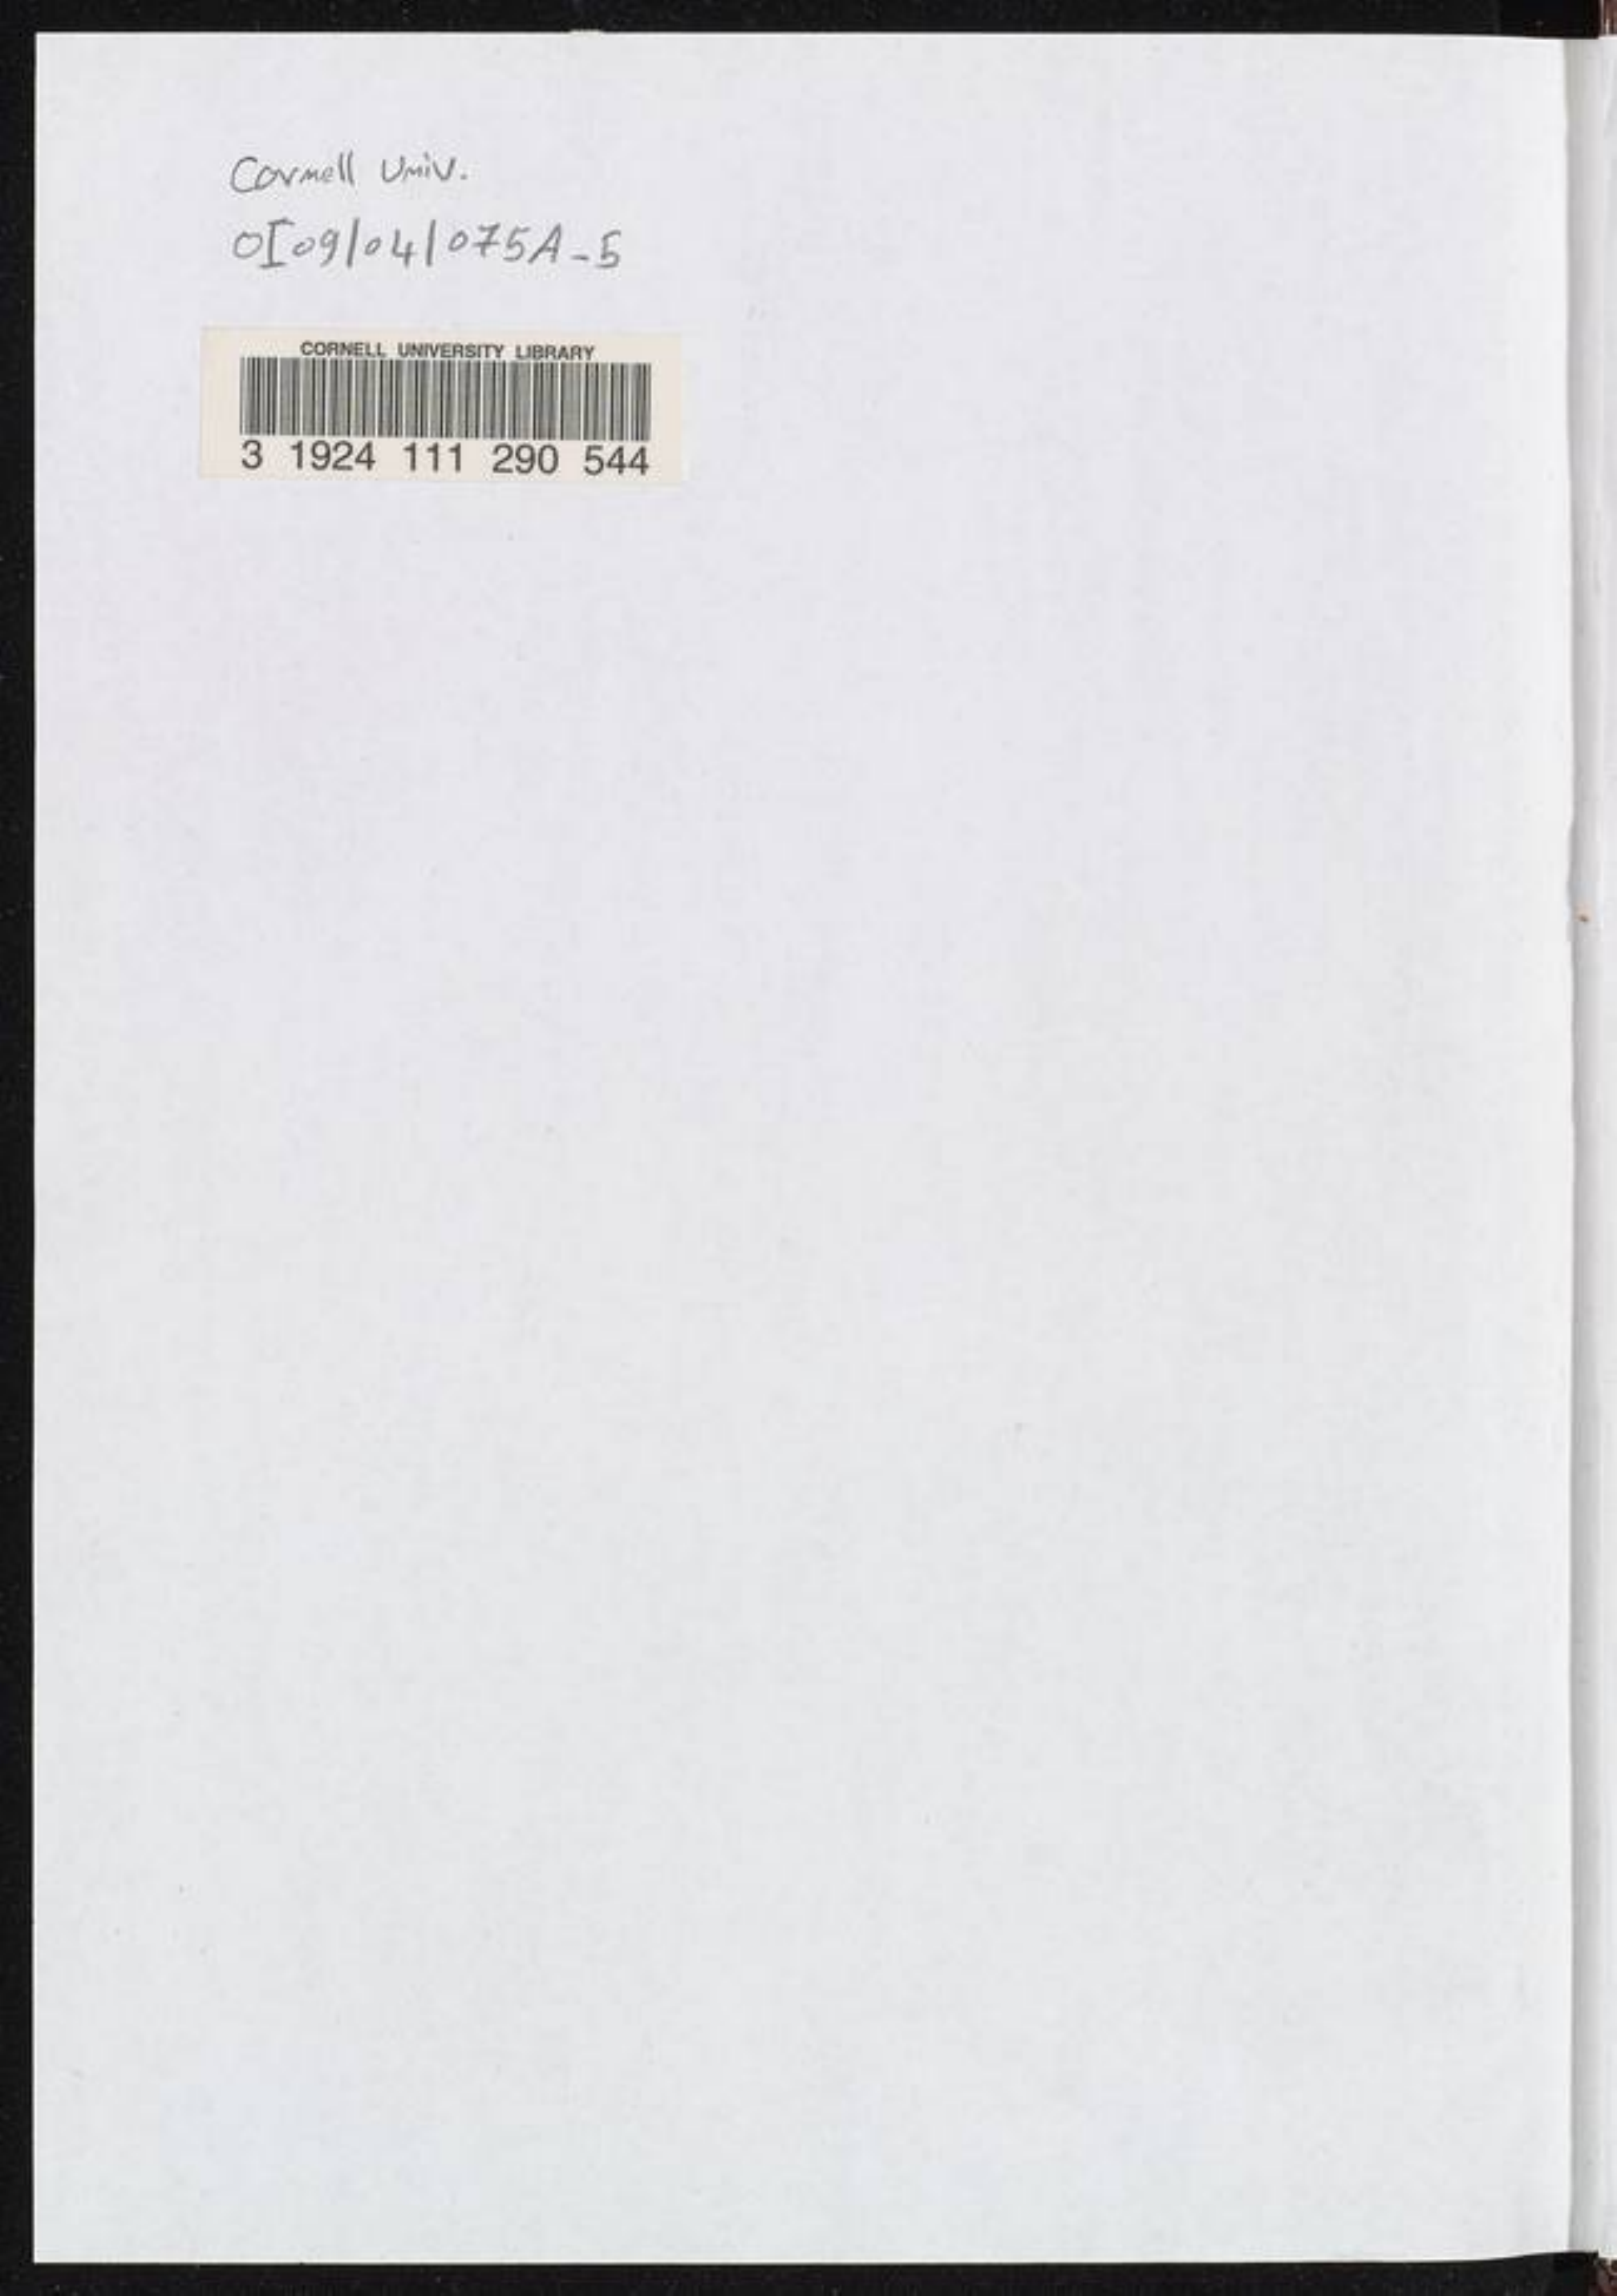 Cornell Univ.
OI09/04/075A-5
CORNELL UNIVERSITY LIBRARY
3 1924 111 290 544